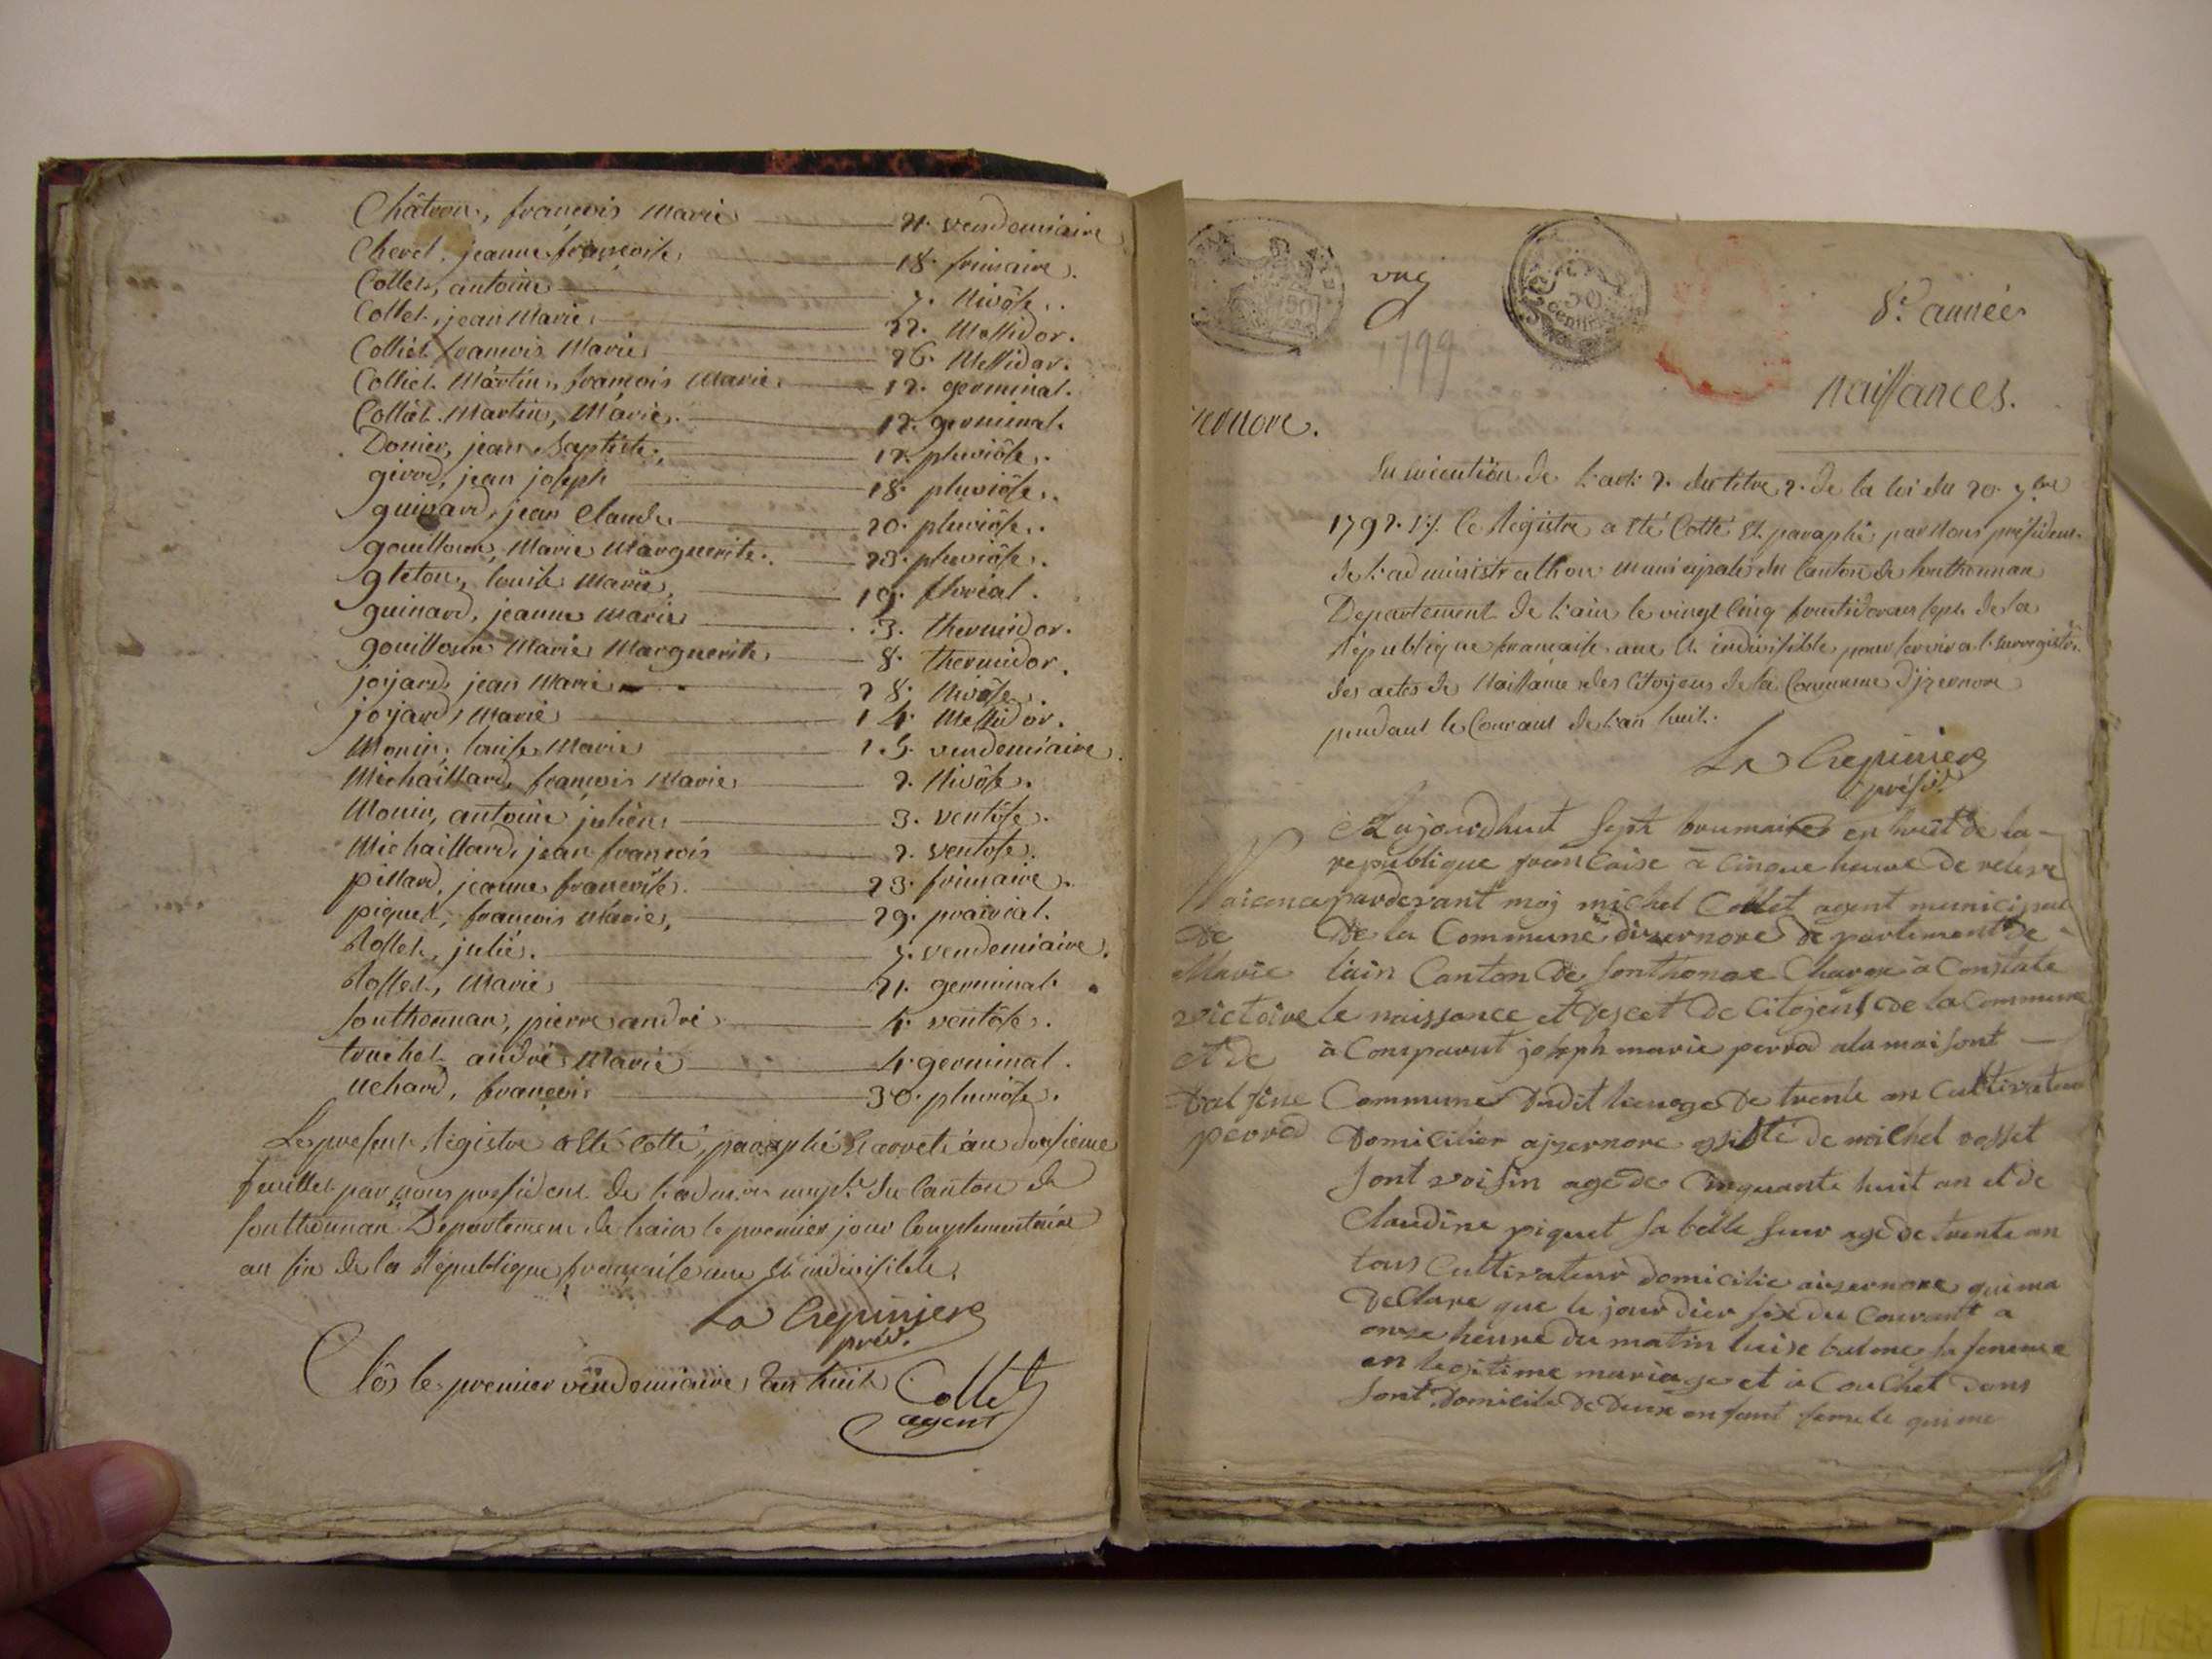 Châtron, françois Marie 21. vendemiaire
Chevel, jeanne françoise 18. frimaire.
Collet, antoine 7. Nivôse.
Collet, jean Marie 22. Messidor.
Colliet françois Marie 26. Messidor.
Colliet Martin, françois Marie 12. germinal.
Colliet Martin, Marie. 12. germinal.
Donier, jean baptiste, 12. pluviôse.
girod, jean joseph 18. pluviôse.
guinard, jean Claude 20. pluviôse.
gouilloux, Marie Marguerite. 23. pluviôse.
gleton, louise Marie, 19. floréal.
guinard, jeanne Marie 3. thermidor.
gouilloux Marie Marguerite 8. thermidor.
jorjard, jean Marie 28. Nivôse.
jorjard, Marie 14. Messidor.
Monin, louise Marie 15. vendemiaire.
Michaillard, françois Marie 2. Nivôse.
Monin, antoine julien 3. ventôse.
Michaillard, jean françois 2. ventôse.
pillard, jeanne françoise. 23. frimaire.
piquet, françois Marie, 29. prairial.
Rosset, julie. 7. vendemiaire.
Rosset, Marie 21. germinal.
sonthonnax, pierre andré 4. ventôse.
truchet, andré Marie 4. germinal.
uchard, françois 30. pluviôse.
Le present Régistre a été cotté, paraphé & arreté au douzieme
feuillet par nous president de l'admon. muple. du Canton de
sonthonnax Departement de l'ain le premier jour Complementaire
an six de la République française une & indivisible.
La Crepiniere
prés.
Clôs le premier vendemiaire an huit
Collet
agent
vng
50
50
centimes
1799
8.e année
ernore.
Naissances.
En execution de l'art. 2. du titre 2. de la loi du 20. 7.bre
1792. le Régistre a été Cotté & paraphé par Nous président
de l'administrathion municipale du Canton de sonthonnax
Departement de l'ain le vingt Cinq fructidor an sept de la
République française une & indivisible, pour servir a l'enregistr.
des actes de Naissance des Citoyens de la Commune d'izernore
pendant le Courant de l'an huit.
La Crepiniere
présid.
Aujourdhuit sept brumaire en huit de la
republique francaise à cinque heure de releve
Naiscence pardevant moj michel Collet agent municipal
de de la Commune dizernore departement de
Marie lain Canton de sonthonax Charge à Constate
victoire le naissance et deset de Citojens de la Commune
et de à Comparut joseph marie perrod ala maisont
Dalfine Commune dudit lieu age de trente an Cultivateur
perrod Domicilier ajzernore assisté de michel rosset
sont voisin age de Cinquante huit an et de
Claudine piquet sa belle seur age de trente an
tous Cultivateur domicilie aizernore qui ma
declare que le jour dier six du Courant a
onze heure du matin luise balme sa femme
en legitime mariage et à Couchet dans
sont domicile de deux enfant femele qui me